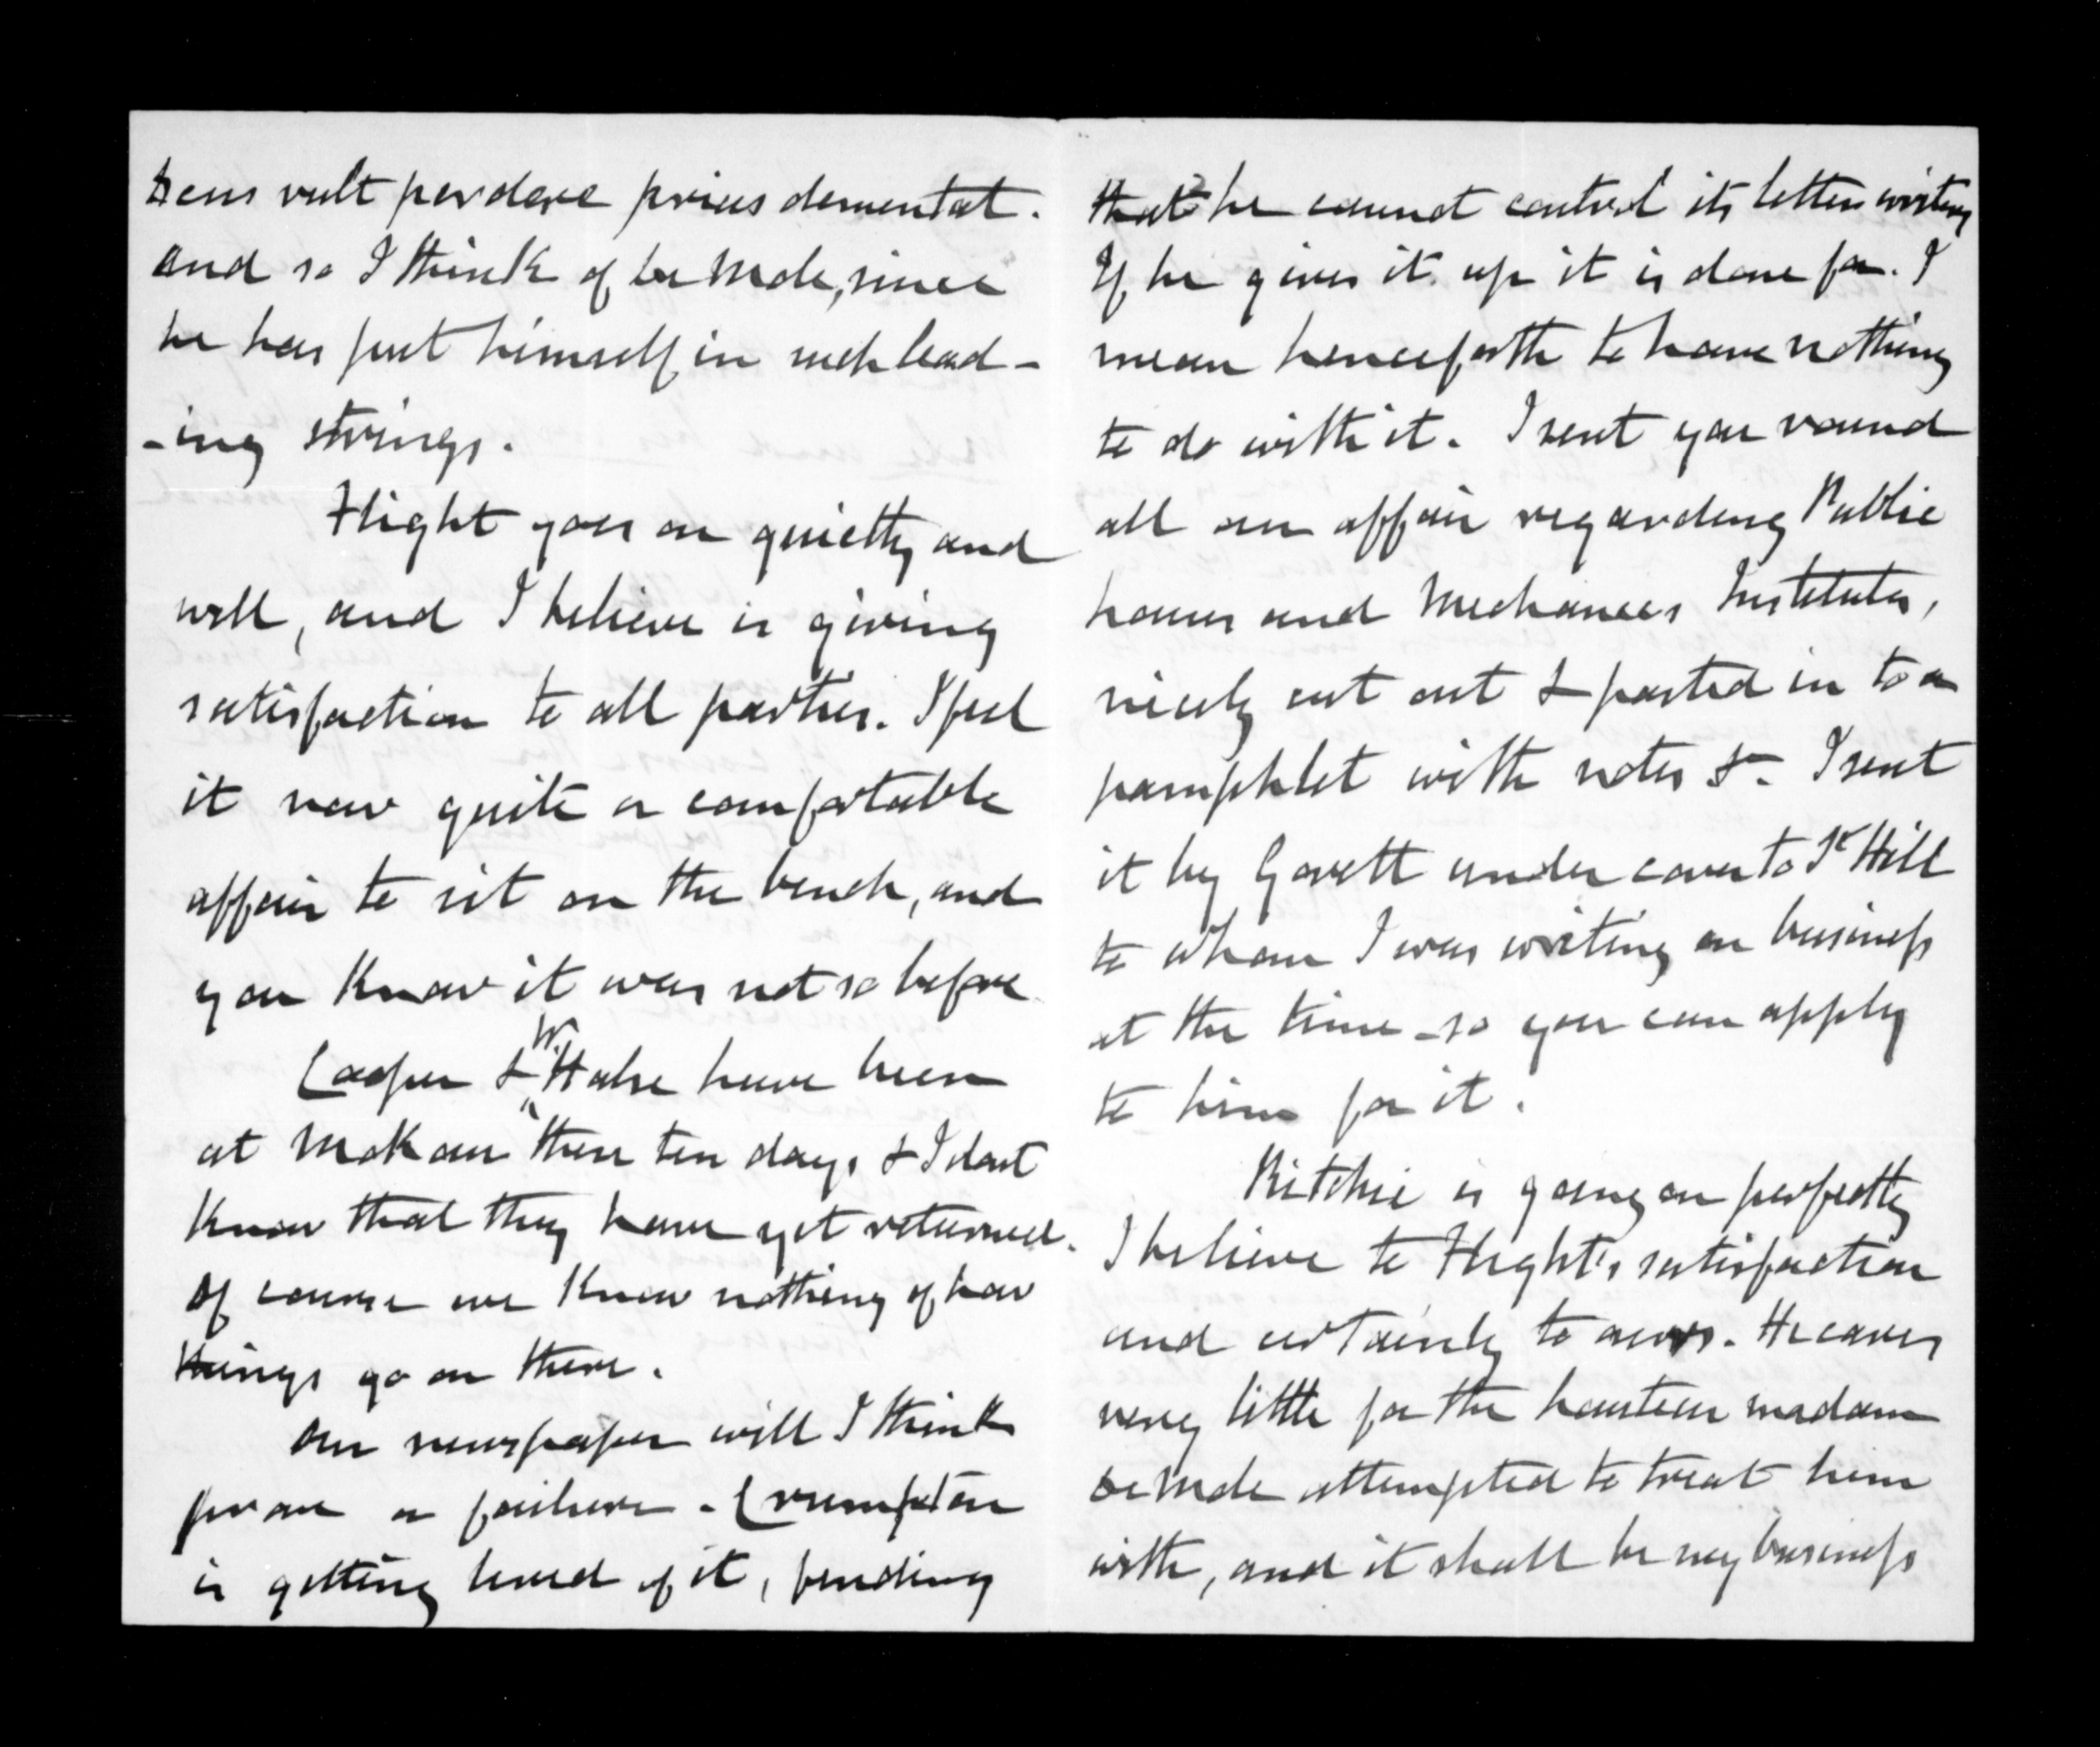 Deus vult perdere prius dementat.
and so I think of be Mole, since
he has put himself in such lead-
-ing strings.
Flight goes on quietly and
well, and I believe is giving
satisfaction to all parties. I feel
it now quite a comfortable
affair to sit on the bench, and
you know it was not so before
Cooper & W. Halse have been
at Mokau these ten days & I dont
know that they have yet returned.
Of course we know nothing of how
things go on there.
Our newspaper will I think
prove a failure - Crumpton
is getting tired of it, finding
that he cannot control its letter writers
If he gives it up it is done for. I
mean henceforth to have nothing
to do with it. I sent you round
all our affair regarding Public
houses and Mechanics Institutes,
nicely cut out & pasted in to a
pamphlet with notes &c. I sent
it by Govett under cover to St Hill
to whom I was writing on business
at the time - so you can apply
to him for it.
Ritchie is going on perfectly
I believe to Flight's satisfaction
and certainly to ours. He cares
very little for the hauteur madam
be Mole attempted to treat him
with, and it shall be my business